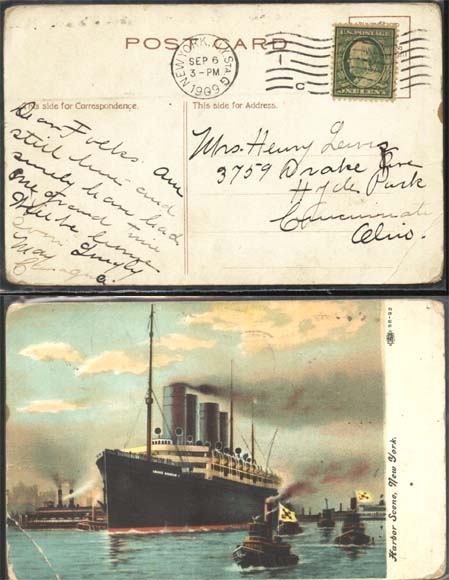 POST CARD
NEW YORK, N.Y. STA. G
SEP 6
3-PM
1909
1
C
U.S. POSTAGE
ONE CENT
This side for Correspondence.
This side for Address.
Dear Folks. Am
still here and
surely have had
one grand time
Will be home
soon.
May
Mrs. Henry Lewis
3759 Drake Ave
Hyde Park
Cincinnati
Ohio.
Harbor Scene, New York.